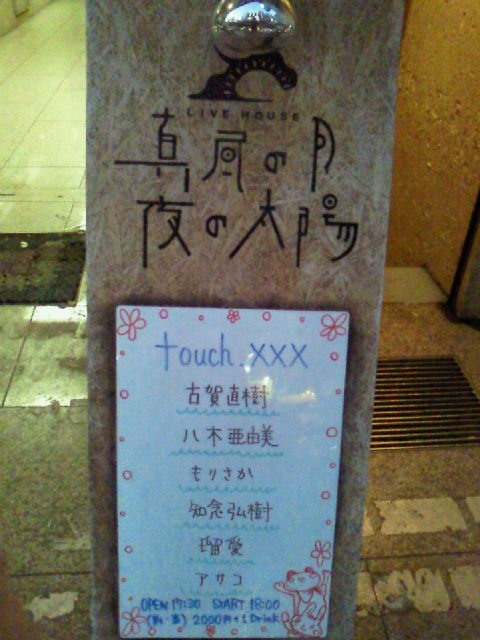 LIVE HOUSE
真昼の月
夜の太陽
touch.xxx
古賀直樹
八木亜由美
もりさか
知念弘樹
瑠愛
アサコ
OPEN 17:30 START 18:00
2000円+1Drink